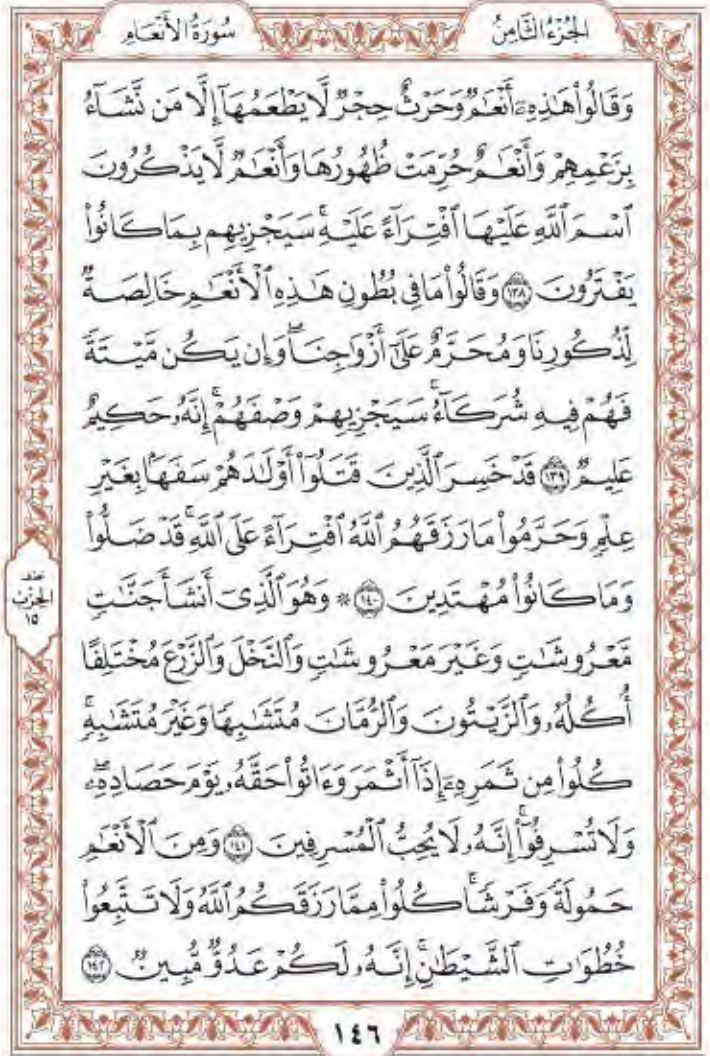 الجُزْءُ الثَّامِنُ
سُورَةُ الأَنْعَامِ
وَقَالُواْ هَٰذِهِۦٓ أَنْعَٰمٌ وَحَرْثٌ حِجْرٌ لَّا يَطْعَمُهَآ إِلَّا مَن نَّشَآءُ
بِزَعْمِهِمْ وَأَنْعَٰمٌ حُرِّمَتْ ظُهُورُهَا وَأَنْعَٰمٌ لَّا يَذْكُرُونَ
ٱسْمَ ٱللَّهِ عَلَيْهَا ٱفْتِرَآءً عَلَيْهِۚ سَيَجْزِيهِم بِمَا كَانُواْ
يَفْتَرُونَ ١٣٨ وَقَالُواْ مَا فِى بُطُونِ هَٰذِهِ ٱلْأَنْعَٰمِ خَالِصَةٌ
لِّذُكُورِنَا وَمُحَرَّمٌ عَلَىٰٓ أَزْوَٰجِنَاۖ وَإِن يَكُن مَّيْتَةً
فَهُمْ فِيهِ شُرَكَآءُۚ سَيَجْزِيهِمْ وَصْفَهُمْۚ إِنَّهُۥ حَكِيمٌ
عَلِيمٌ ١٣٩ قَدْ خَسِرَ ٱلَّذِينَ قَتَلُوٓاْ أَوْلَٰدَهُمْ سَفَهًۢا بِغَيْرِ
عِلْمٍ وَحَرَّمُواْ مَا رَزَقَهُمُ ٱللَّهُ ٱفْتِرَآءً عَلَى ٱللَّهِۚ قَدْ ضَلُّواْ
وَمَا كَانُواْ مُهْتَدِينَ ١٤٠ ۞ وَهُوَ ٱلَّذِىٓ أَنشَأَ جَنَّٰتٍ
مَّعْرُوشَٰتٍ وَغَيْرَ مَعْرُوشَٰتٍ وَٱلنَّخْلَ وَٱلزَّرْعَ مُخْتَلِفًا
أُكُلُهُۥ وَٱلزَّيْتُونَ وَٱلرُّمَّانَ مُتَشَٰبِهًا وَغَيْرَ مُتَشَٰبِهٍۚ
كُلُواْ مِن ثَمَرِهِۦٓ إِذَآ أَثْمَرَ وَءَاتُواْ حَقَّهُۥ يَوْمَ حَصَادِهِۦۖ
وَلَا تُسْرِفُوٓاْۚ إِنَّهُۥ لَا يُحِبُّ ٱلْمُسْرِفِينَ ١٤١ وَمِنَ ٱلْأَنْعَٰمِ
حَمُولَةً وَفَرْشًاۚ كُلُواْ مِمَّا رَزَقَكُمُ ٱللَّهُ وَلَا تَتَّبِعُواْ
خُطُوَٰتِ ٱلشَّيْطَٰنِۚ إِنَّهُۥ لَكُمْ عَدُوٌّ مُّبِينٌ ١٤٢
نصف
الحِزْب
١٥
١٤٦